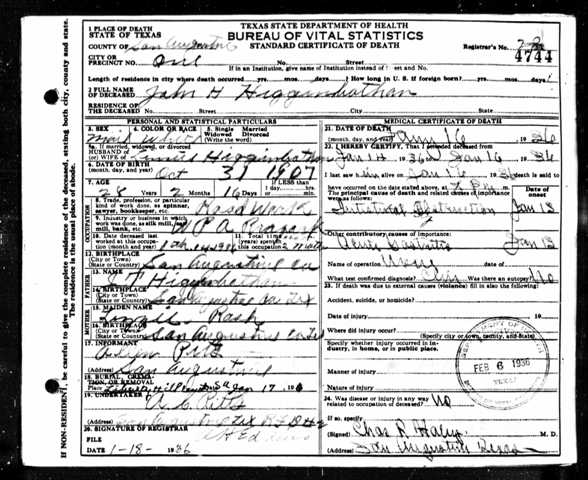 TEXAS STATE DEPARTMENT OF HEALTH
BUREAU OF VITAL STATISTICS
STANDARD CERTIFICATE OF DEATH
1 PLACE OF DEATH
STATE OF TEXAS
COUNTY OF San Augustine
CITY OR PRECINCT NO. One No. Street
Registrar's No. 
4744
If in an Institution, give name of Institution instead of Street and No.
Length of residence in city where death occurred yrs. mos. days ? How long in U. S. if foreign born? yrs. mos. days
2 FULL NAME OF DECEASED John H Higginbotham
RESIDENCE OF THE DECEASED No. Street City State
PERSONAL AND STATISTICAL PARTICULARS
3. SEX 4. COLOR OR RACE 5. Single Married Widowed Divorced (Write the word)
5a. If married, widowed or divorced
HUSBAND OF (or) WIFE OF Higginbotham
6. DATE OF BIRTH Oct 31 1907
7. AGE 28 Years 2 Months 16 Days If LESS than 1 day, hrs. min.
8. Trade, profession, or particular kind of work done, as spinner, sawyer, bookkeeper, etc. Road Work
9. Industry or business in which work was done, as silk mill, saw mill, bank, etc. W P A
10. Date deceased last worked at this occupation (month and year)
11. Total time (years) spent in this occupation
12. BIRTHPLACE (City or Town) (State or Country) San Augustine Co
13. NAME
14. BIRTHPLACE (City or Town) (State or Country) San Augustine Co Tex
15. MAIDEN NAME
16. BIRTHPLACE (City or Town) (State or Country) San Augustine Co Tex
17. INFORMANT Pitts
San Augustine
18. BURIAL, CREMATION OR REMOVAL
Place Liberty Hill Date Jan 17, 19
19. UNDERTAKER Pitts
20. SIGNATURE OF REGISTRAR
FILE DATE 1-18- 1936
MEDICAL CERTIFICATE OF DEATH
21. DATE OF DEATH (month, day, year) Jan 16 1936
22. I HEREBY CERTIFY, That I attended deceased from
Jan 14 1936 to Jan 16 1936
I last saw him alive on Jan 16 death is said
to have occurred on the date stated above, at m.
The principal cause of death and related causes of importance were as follows: Date of onset
Intestinal Obstruction Jan 13
Other contributory causes:
Jan 13
Name of operation None date of
What test confirmed diagnosis? Was there an autopsy? No
23. If death was due to external causes (violence) fill in also the following:
Accident, suicide, or homicide?
Date of injury 19
Where did injury occur?
(Specify city or town, county, and State)
Specify whether injury occurred in industry, in home, or in public place.
Manner of injury
Nature of injury
FEB 6 1936
TEXAS
24. Was disease or injury in any way related to occupation of deceased? No
If so, specify
(Signed) Chas R Haley M. D.
(Address) San Augustine Texas
OCCUPATION
FATHER
MOTHER
IF NON-RESIDENT, be careful to give the complete residence of the deceased, stating both city, county and state. The residence is the usual place of abode.